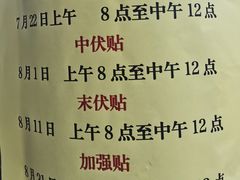 7月22日上午 8点至中午12点
中伏贴
8月1日 上午8点至中午12点
末伏贴
8月11日 上午8点至中午12点
加强贴